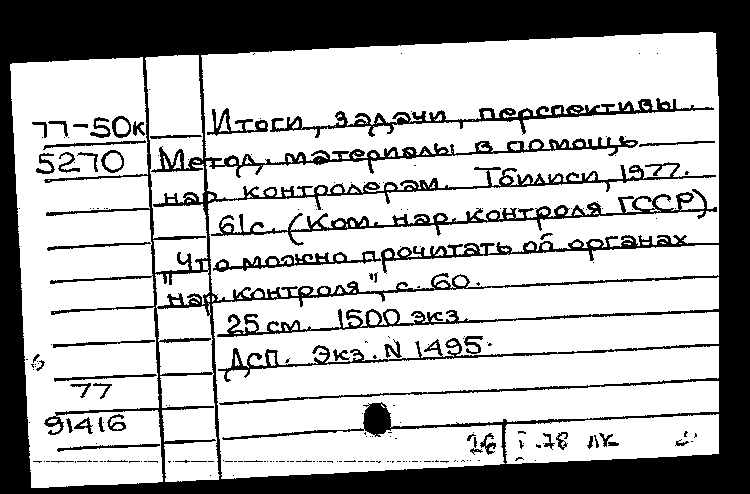 77-50к Итоги, задачи, перспективы.
5270 Метод. материалы в помощь
нар. контролерам. Тбилиси, 1977.
61с. (Ком. нар. контроля ГССР).
"Что можно прочитать об органах
нар. контроля", с. 60.
25 см. 1500 экз.
Дсп. Экз. N 1495.
6
77
91416
26 I.78 ЛК